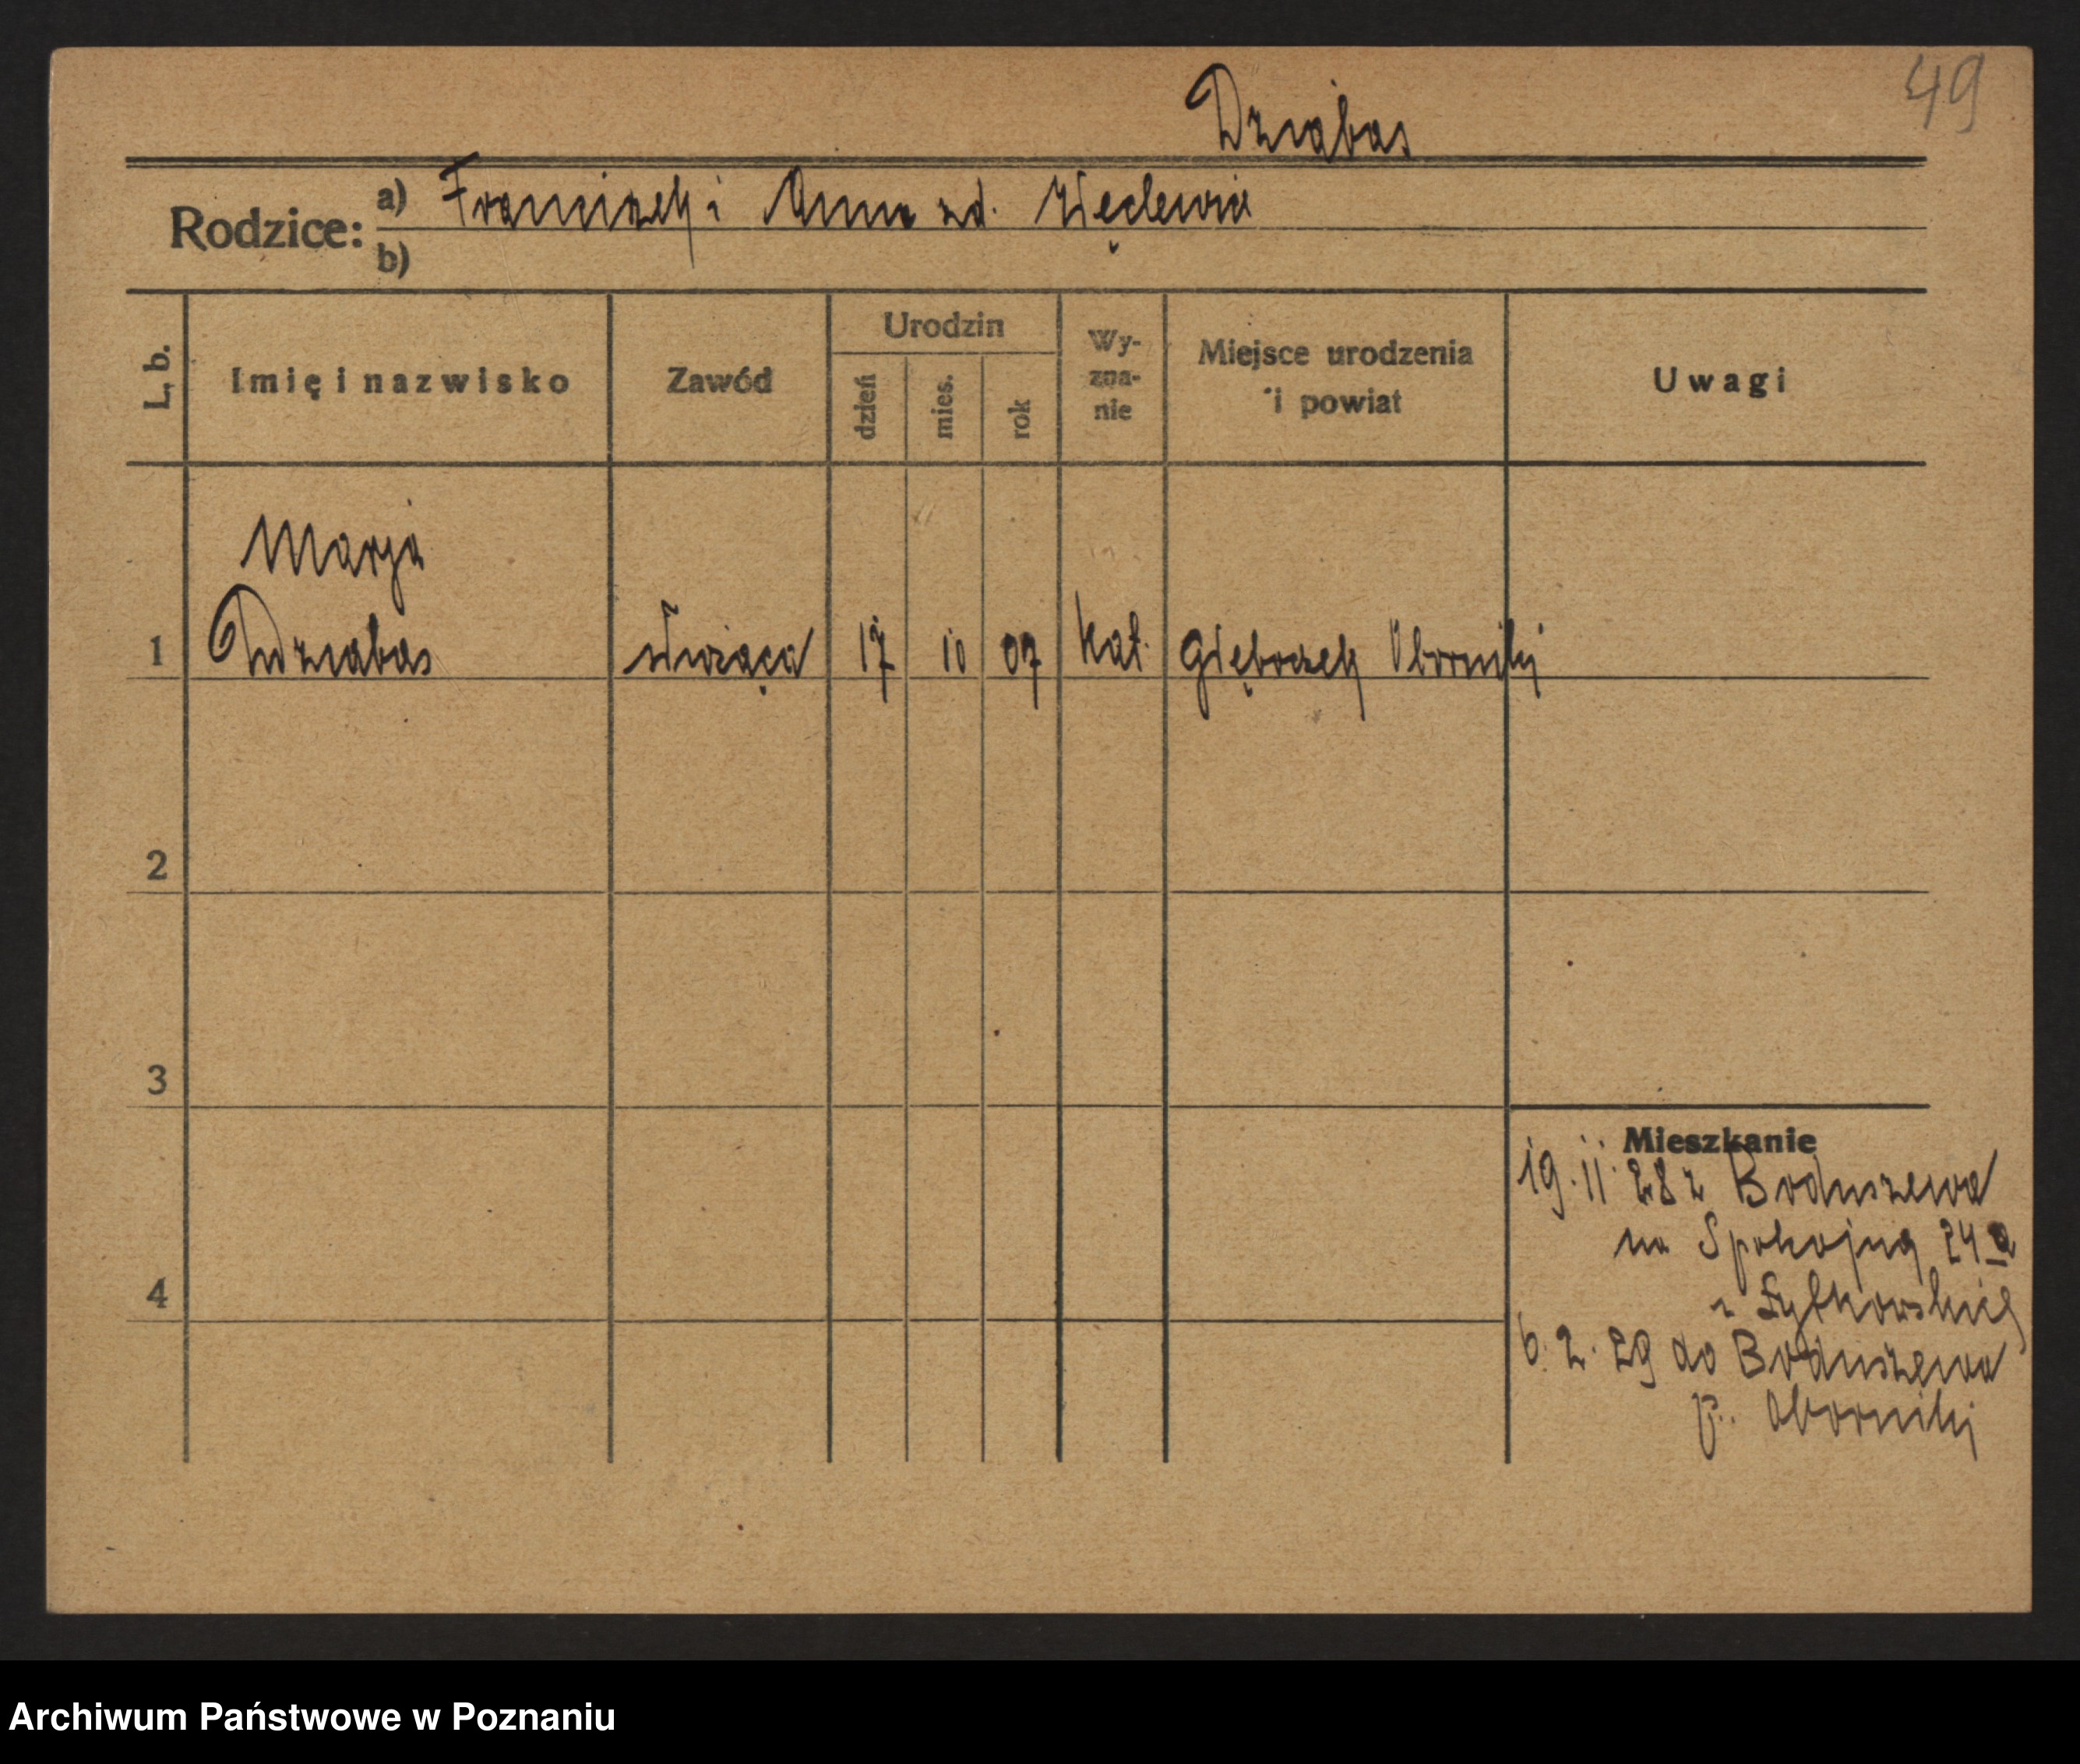 49
Dziabas
Rodzice: a) Franciszek i Anna zd. Węclewicz
b)
L. b. Imię i nazwisko Zawód Urodzin dzień mies. rok Wy-zna-nie Miejsce urodzenia i powiat Uwagi
Marja
1 Dziabas służąca 17 10 07 kat. Głęboczek Oborniki
2
3
Mieszkanie
19.11.28 z Boduszewa
na Spokojną 24a
4
6.2.29 do Boduszewa
p. Oborniki
Archiwum Państwowe w Poznaniu